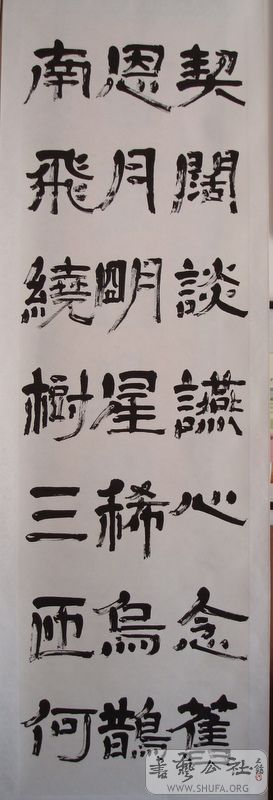 契闊談讌心念舊
恩月明星稀烏鵲
南飛繞樹三匝何
書藝公社
WWW.SHUFA.ORG